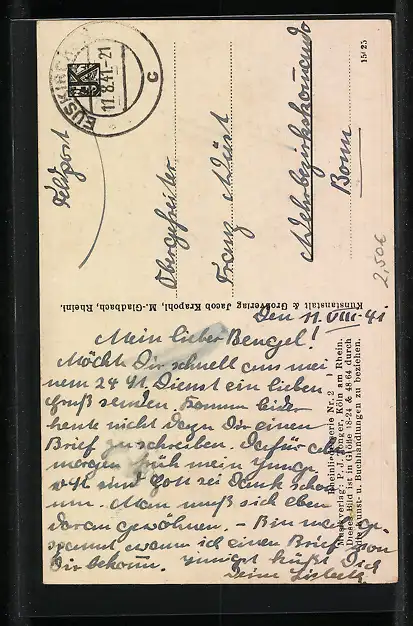 EUSKIRCHEN
11.8.41.-21
c
Feldpost
Obergefreiter
Franz Wüst
Wehrbezirkskommando
Bonn
15/25
2,50€
Kunstanstalt & Großverlag Jacob Krapohl, M.-Gladbach, Rheinl.
Rheinliederserie Nr. 2
Musikverlag: P. J. Tonger, Köln am Rhein.
Dieses Bild ist in Größe 18-24 & 48-64 durch
alle Kunst- u. Buchhandlungen zu beziehen.
Den 11. VIII. 41
Mein lieber Bengel!
Möcht Dir schnell aus mei-
nem 24 St. Dienst ein lieben
Gruß senden. Komm leider
heute nicht dazu Dir einen
Brief zu schreiben. Dafür
morgen früh mein Junge.
sind Gott sei Dank schon
um. Man muß sich eben
daran gewöhnen. - Bin ge-
spannt wann ich einen Brief von
Dir bekomm. Innigst küßt Dich
Deine Lisbeth